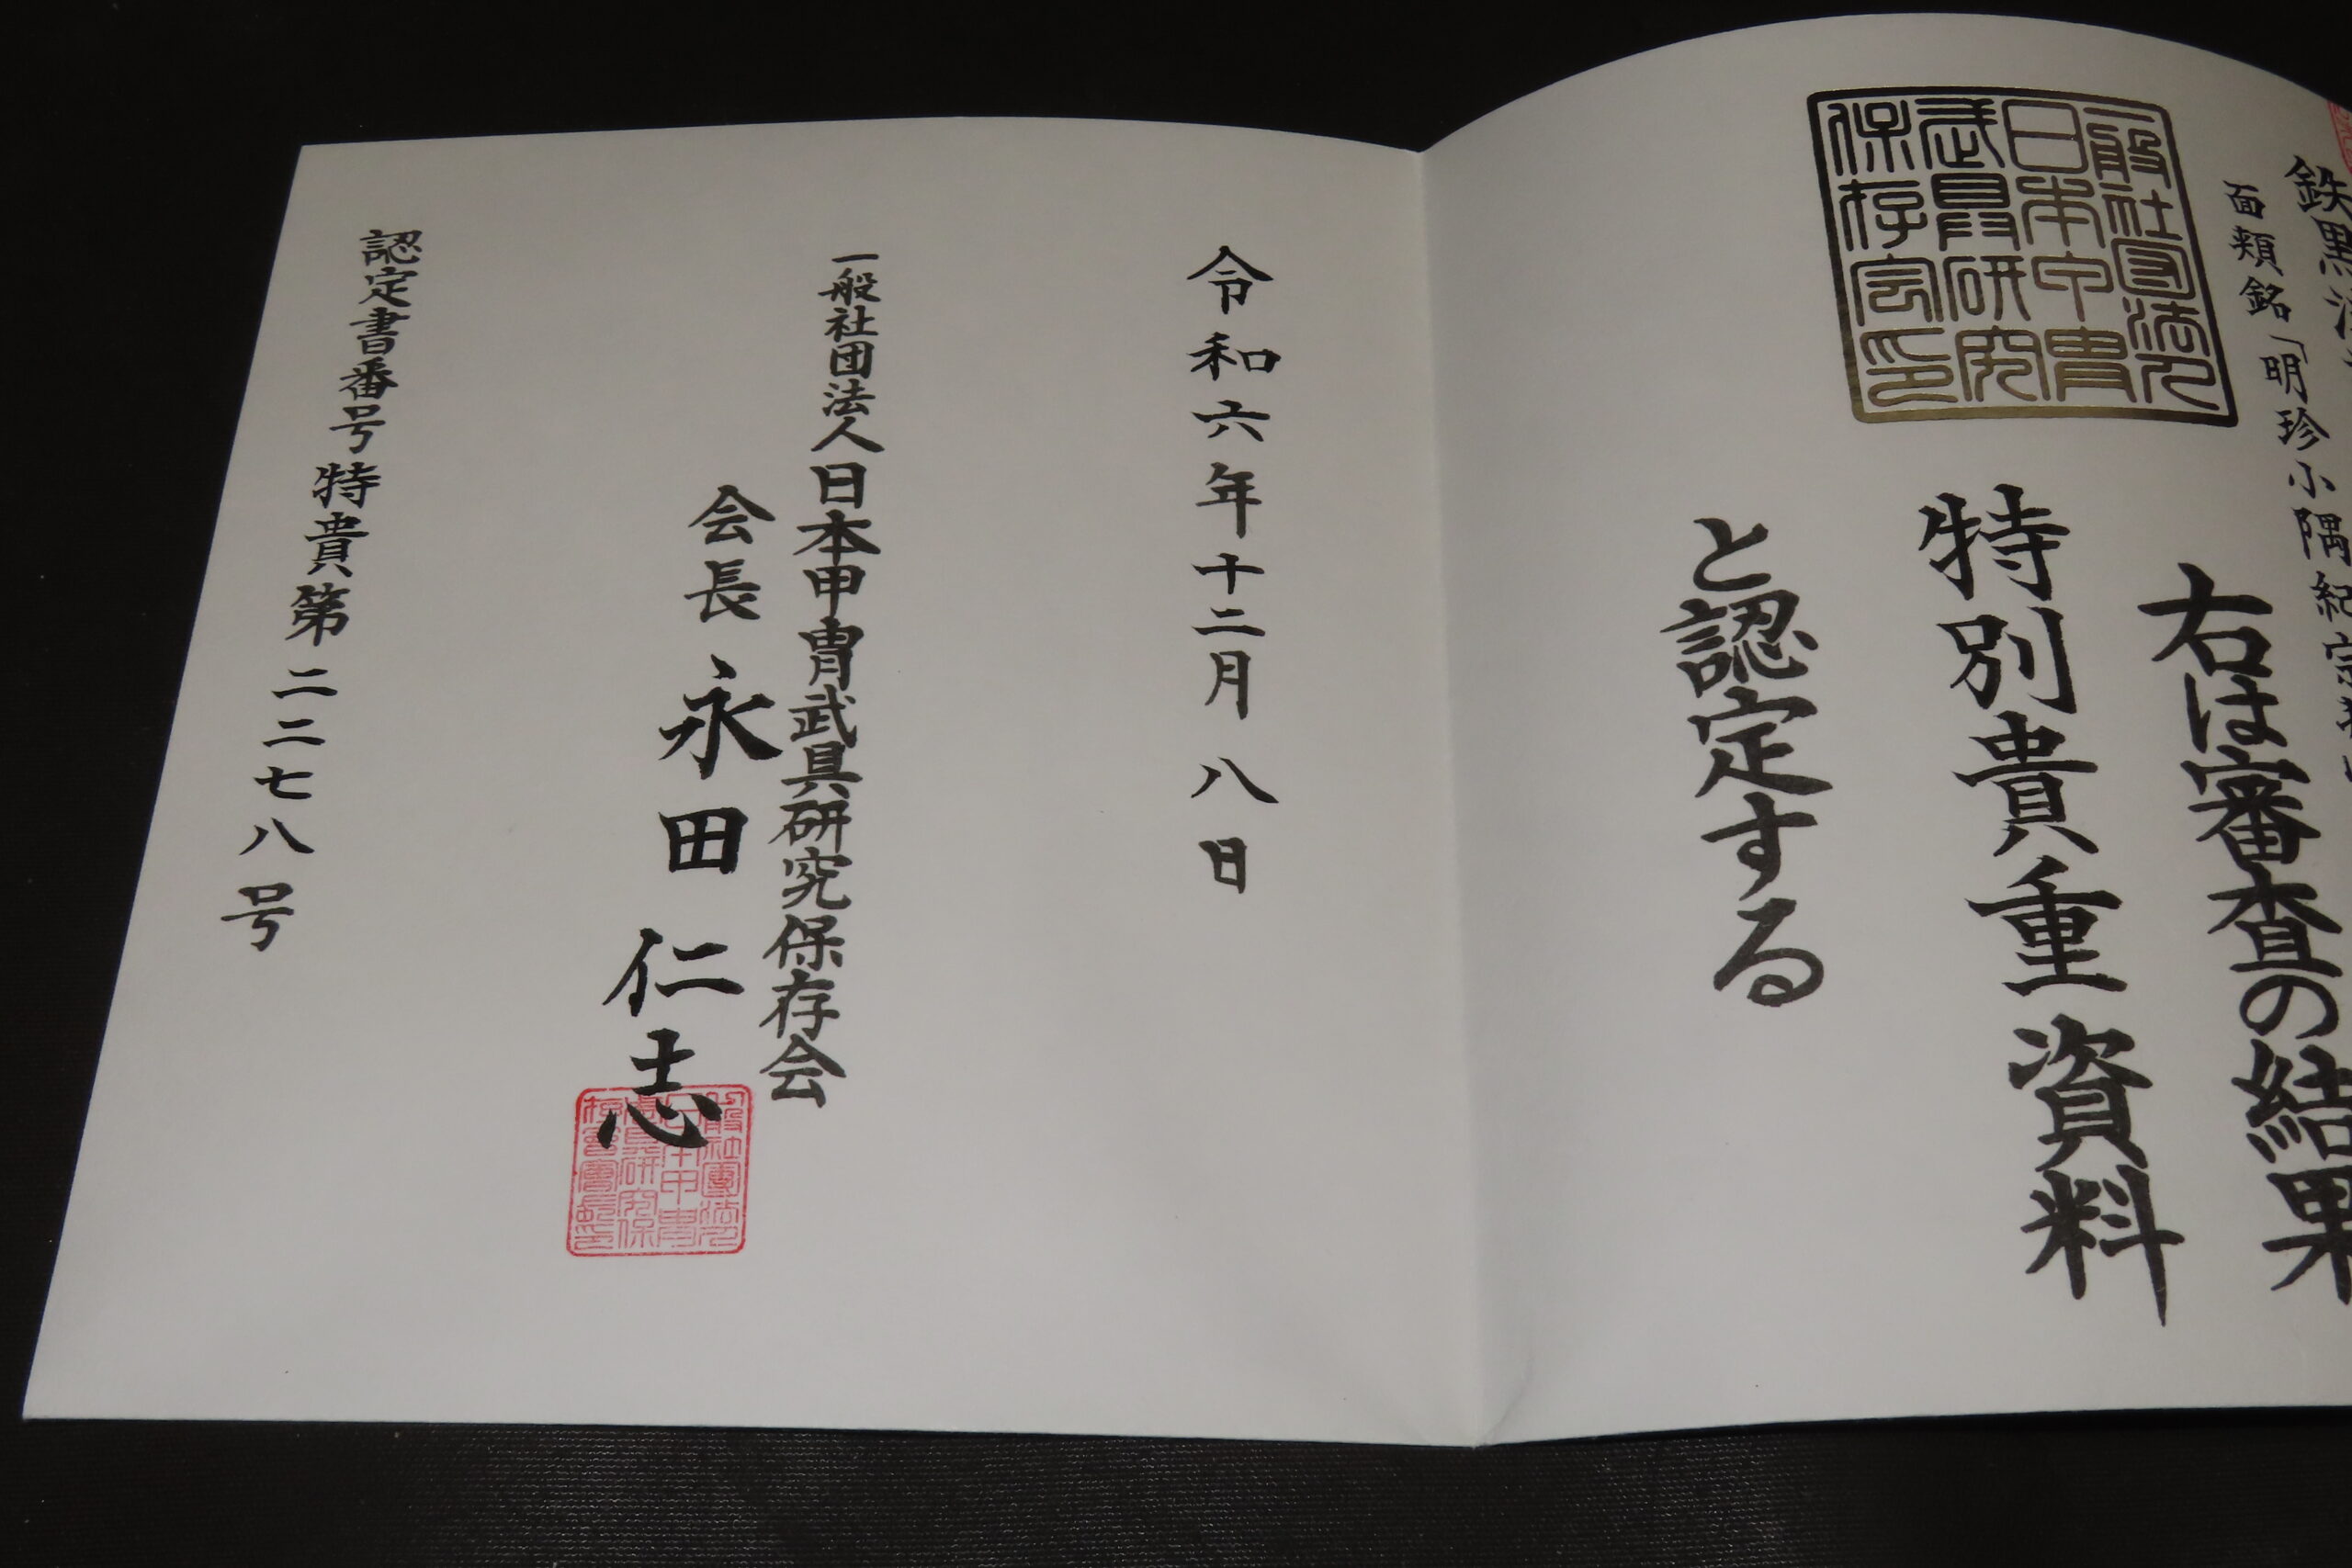 鉄黒
面頬銘「明珍小隅紀宗
右は審査の結果
特別貴重資料
と認定する
一般社団法人
日本甲冑
武具研究
保存会印
令和六年十二月八日
一般社団法人日本甲冑武具研究保存会
会長 永田仁志
認定書番号 特貴第二二七八号